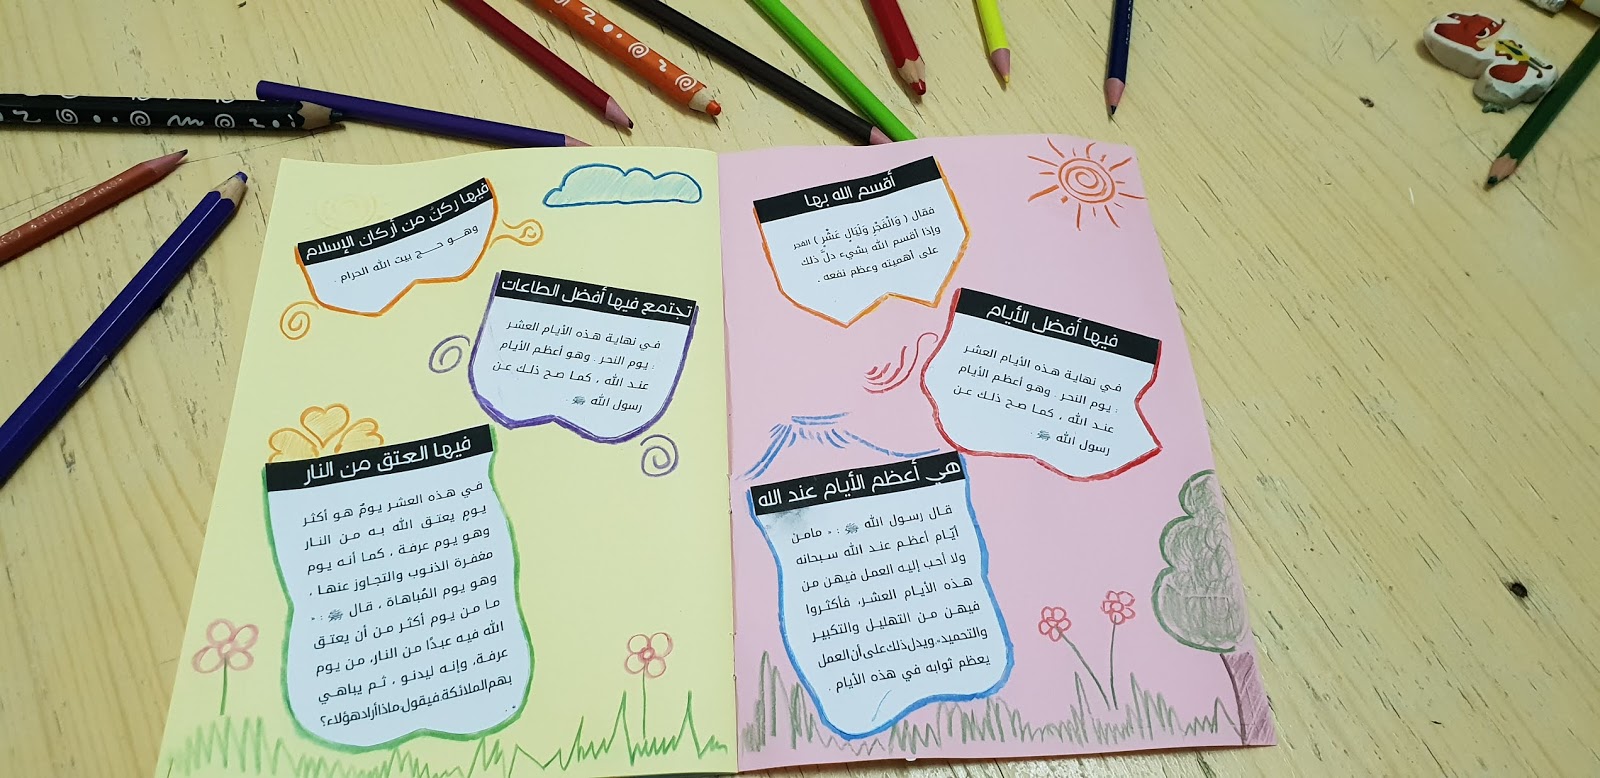 أقسم الله بها
فقال ( وَالْفَجْرِ وَلَيَالٍ عَشْرٍ ) الفجر
وإذا أقسم الله بشيء دلَّ ذلك
على أهميته وعظم نفعه .
فيها أفضل الأيام
في نهاية هذه الأيام العشر
: يوم النحر . وهو أعظم الأيام
عند الله ، كما صح ذلك عن
رسول الله ﷺ .
هي أعظم الأيام عند الله
قال رسول الله ﷺ : " مامن
أيّام أعظم عند الله سبحانه
ولا أحب إليه العمل فيهن من
هذه الأيام العشر، فأكثروا
فيهن من التهليل والتكبير
والتحميد". ويدل ذلك على أن العمل
يعظم ثوابه في هذه الأيام .
فيها ركنٌ من أركان الإسلام
وهو حج بيت الله الحرام .
تجتمع فيها أفضل الطاعات
في نهاية هذه الأيام العشر
: يوم النحر . وهو أعظم الأيام
عند الله ، كما صح ذلك عن
رسول الله ﷺ .
فيها العتق من النار
في هذه العشر يومٌ هو أكثر
يوم يعتق الله به من النار
وهو يوم عرفة ، كما أنه يوم
مغفرة الذنوب والتجاوز عنها ،
وهو يوم المُباهاة ، قال ﷺ : "
ما من يوم أكثر من أن يعتق
الله فيه عبدًا من النار، من يوم
عرفة، وإنه ليدنو ، ثم يباهي
بهم الملائكة فيقول ماذا أراد هؤلاء؟
" .